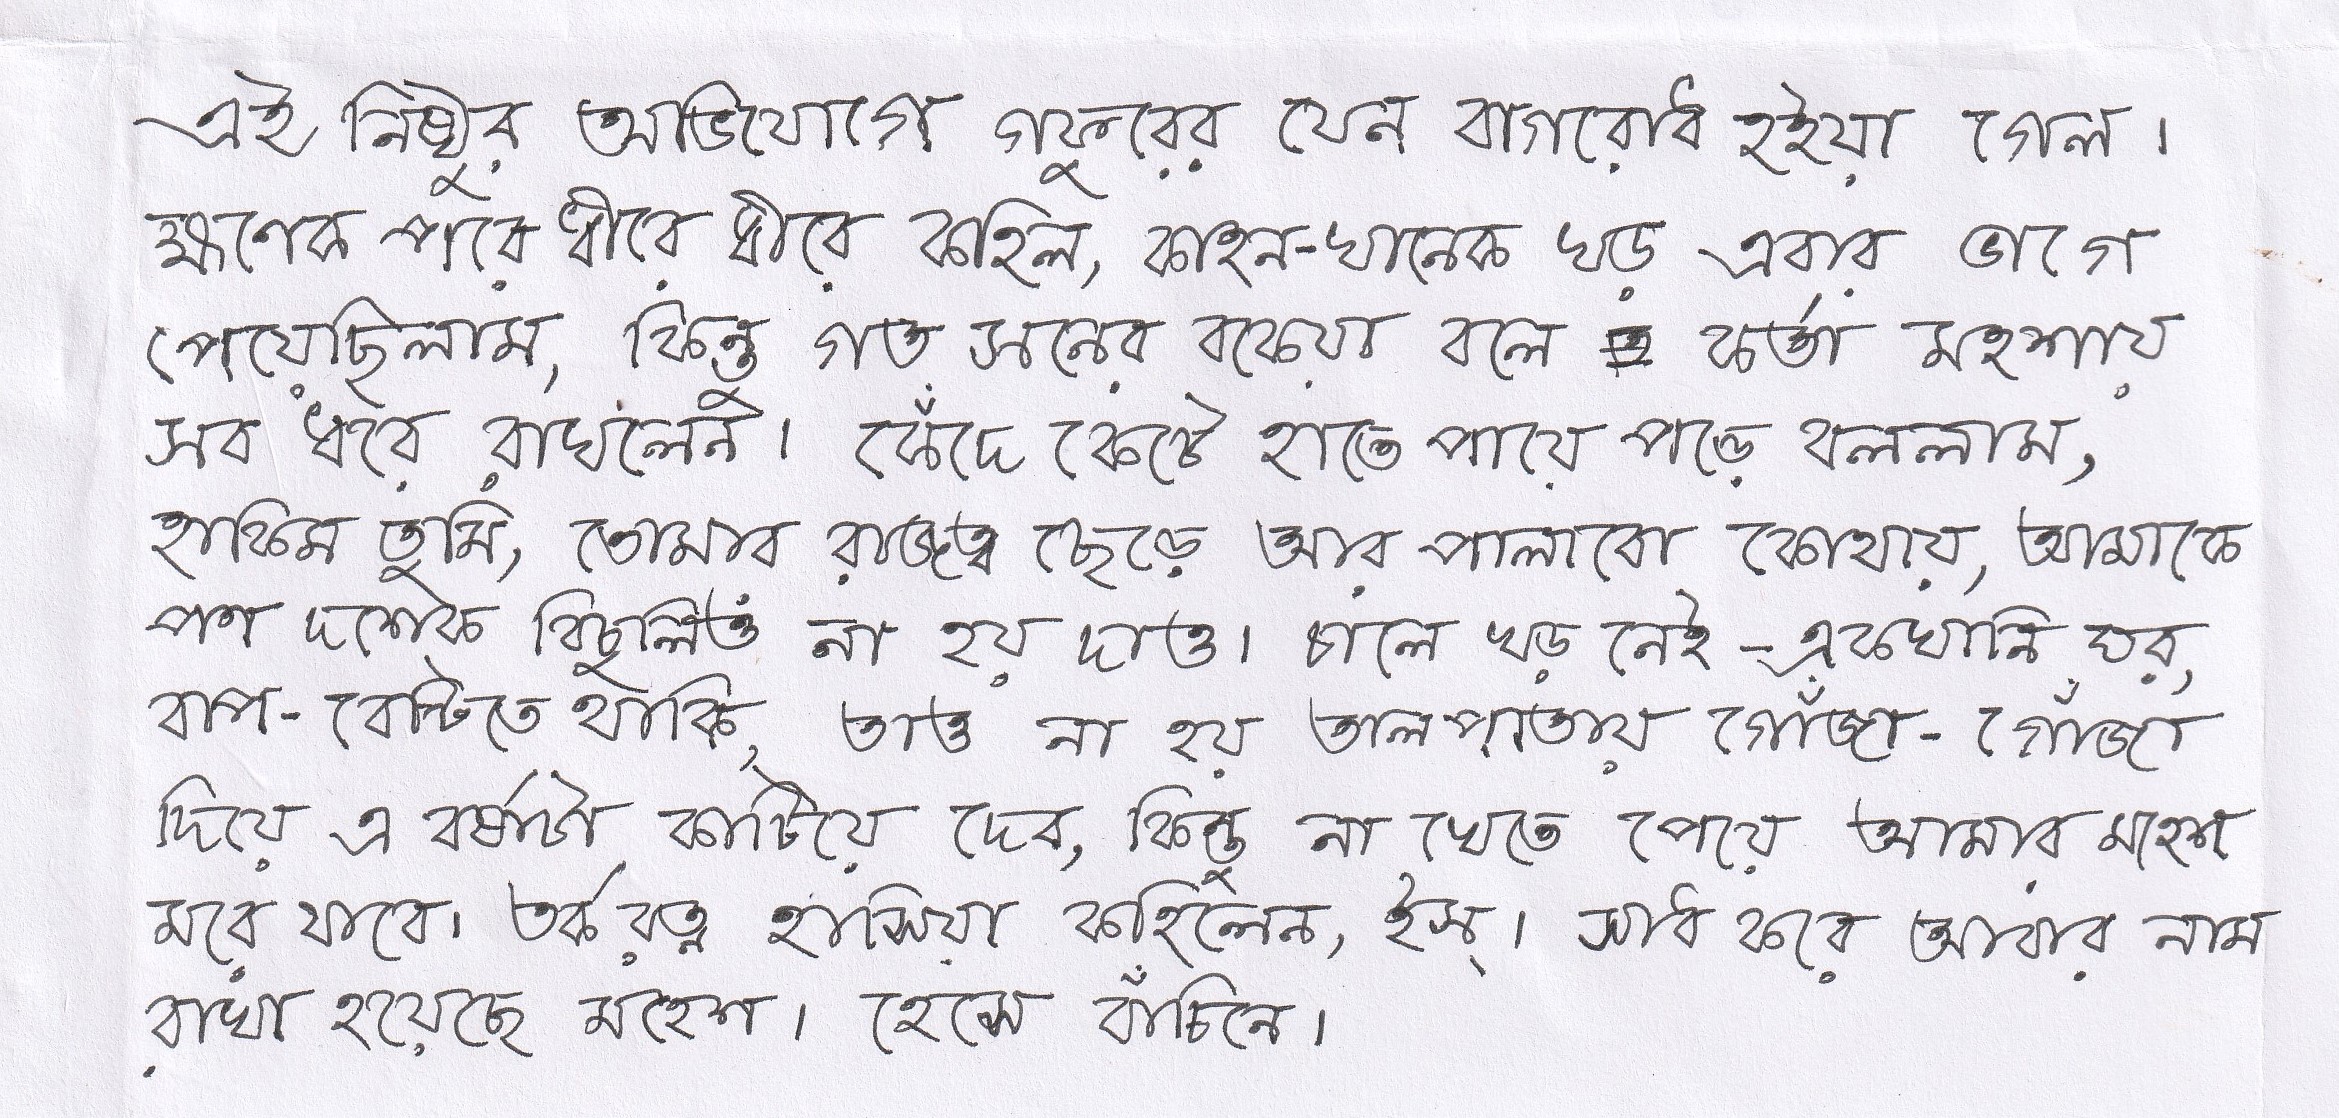 এই নিষ্ঠুর অভিযোগে গফুরের যেন বাগরোধ হইয়া গেল।
ক্ষণেক পরে ধীরে ধীরে কহিল, কাহন-খানেক খড় এবার ভাগে
পেয়েছিলাম, কিন্তু গত সনের বকেয়া বলে কর্তা মহশায়
সব ধরে রাখলেন। কেঁদে কেটে হাতে পায়ে পড়ে বললাম,
হাকিম তুমি, তোমার রাজত্ব ছেড়ে আর পালাবো কোথায়, আমাকে
পণ দশেক বিচুলিও না হয় দাও। চালে খড় নেই - একখানি ঘর,
বাপ - বেটিতে থাকি, তাও না হয় তালপাতায় গোঁজা - গোঁজা
দিয়ে এ বর্ষাটা কাটিয়ে দেব, কিন্তু না খেতে পেয়ে আমার মহেশ
মরে যাবে। তর্করত্ন হাসিয়া কহিলেন, ইস্। সাধ করে আবার নাম
রাখা হয়েছে মহেশ। হেসে বাঁচিনে।